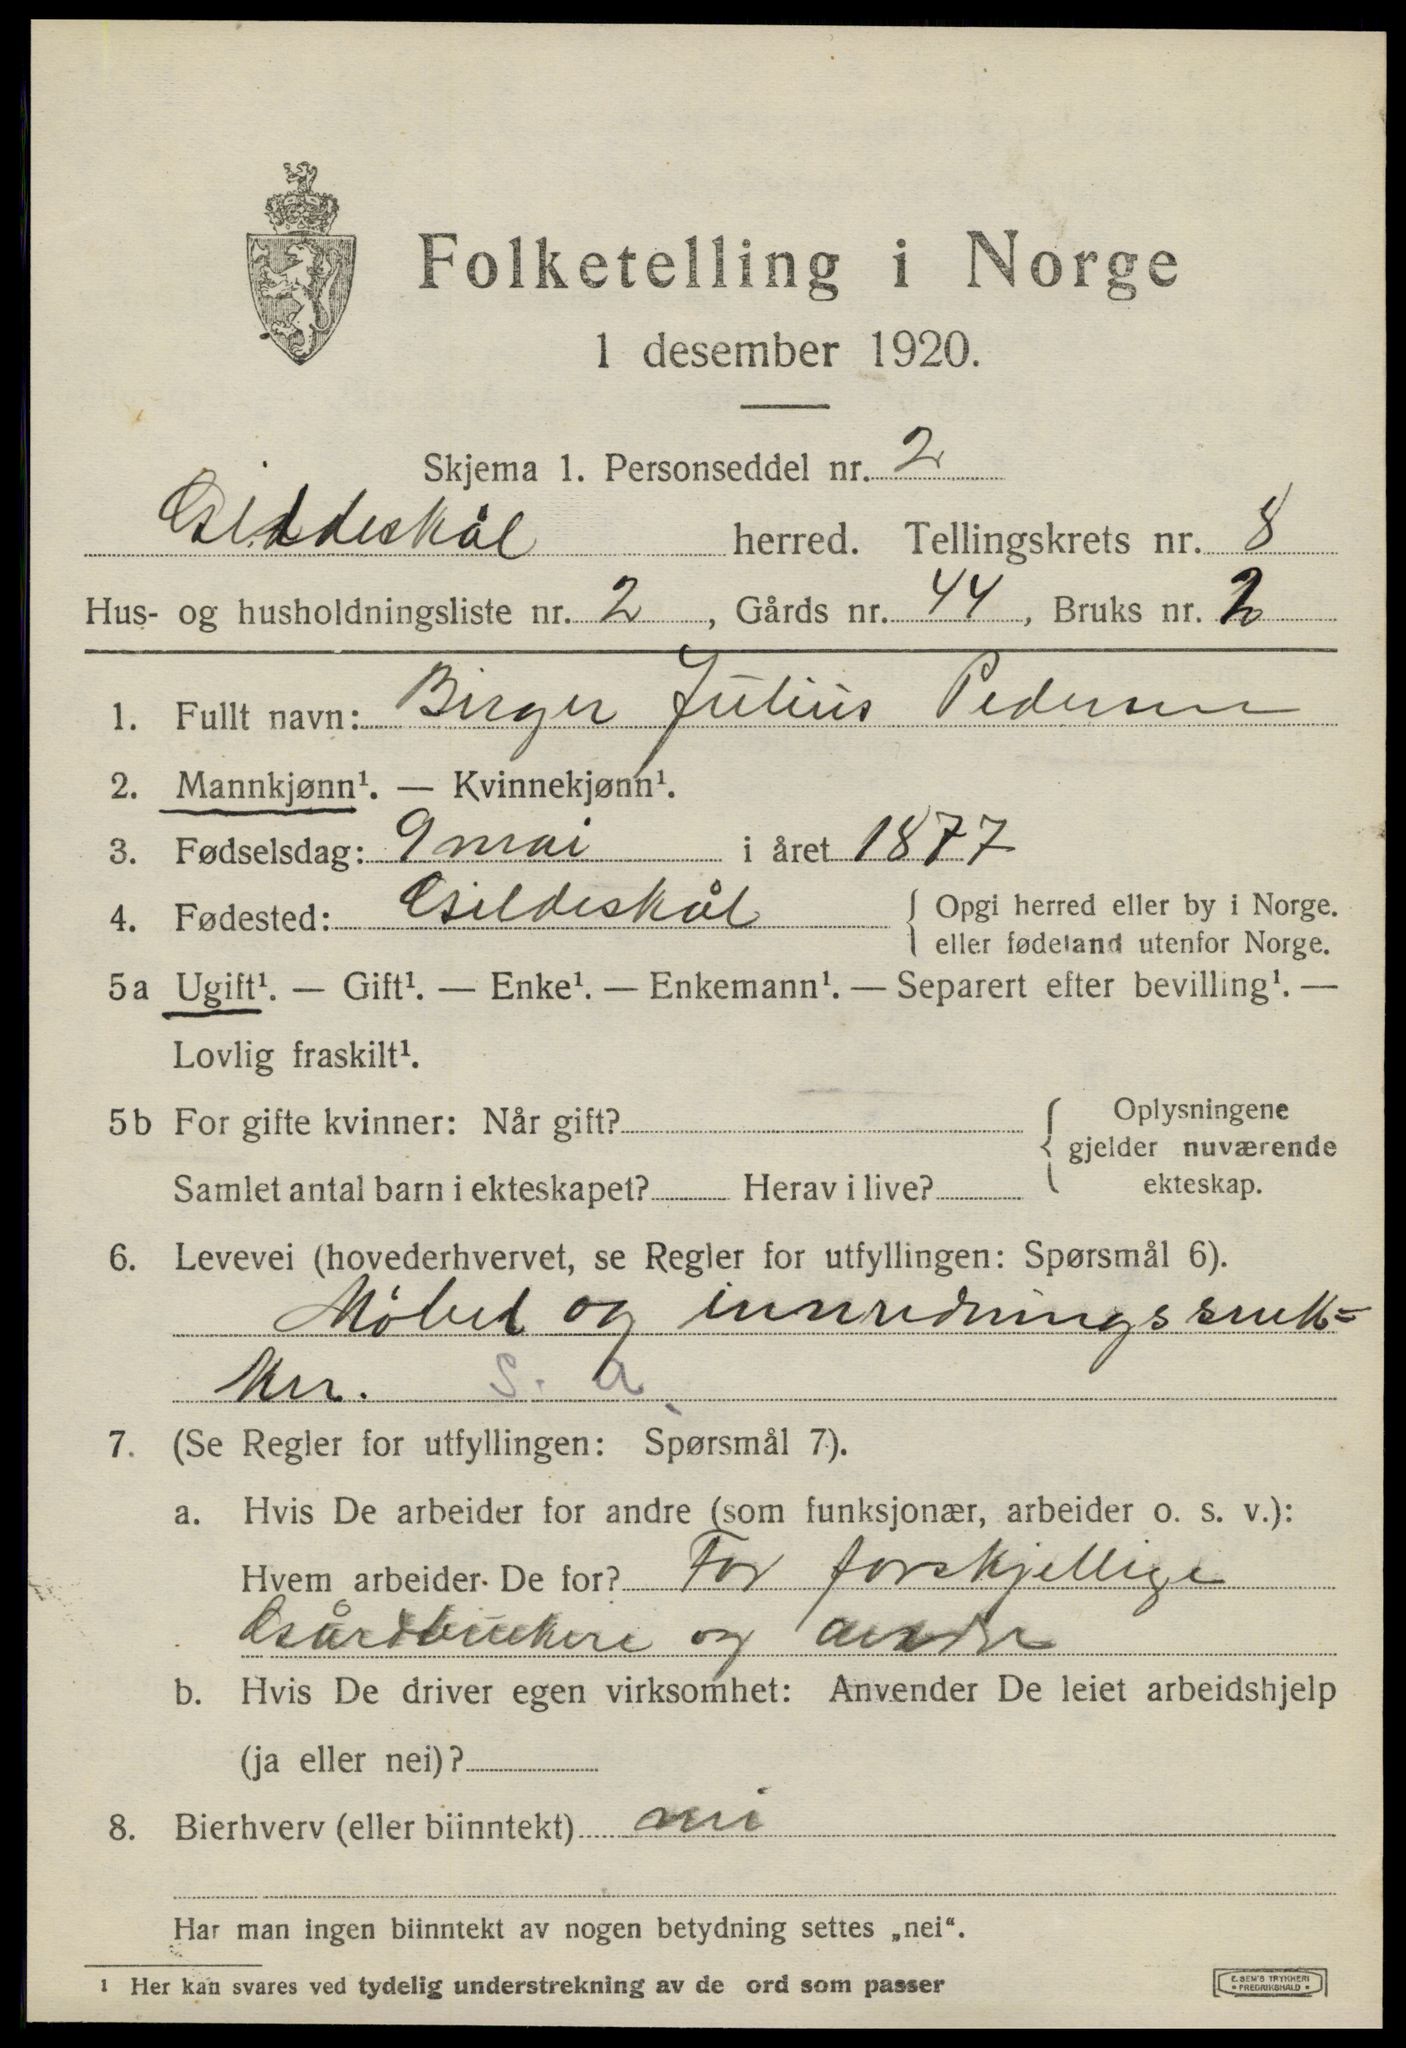 Folketelling i Norge
1 desember 1920.
Skjema 1. Personseddel nr. 2
Gildeskål herred. Tellingskrets nr. 8
Hus- og husholdningsliste nr. 2, Gårds nr. 44, Bruks nr. 2
1. Fullt navn: Birger Julius Pedersen
2. Mannkjønn¹. — Kvinnekjønn¹.
3. Fødselsdag: 9 mai i året 1877
4. Fødested: Gildeskål { Opgi herred eller by i Norge.
eller fødeland utenfor Norge.
5a Ugift¹. — Gift¹. — Enke¹. — Enkemann¹. — Separert efter bevilling¹. —
Lovlig fraskilt¹.
5b For gifte kvinner: Når gift? { Oplysningene
gjelder nuværende
Samlet antal barn i ekteskapet? Herav i live? ekteskap.
6. Levevei (hovederhvervet, se Regler for utfyllingen: Spørsmål 6).
Møbel og innredningssnek=
ker. S. a
7. (Se Regler for utfyllingen: Spørsmål 7).
a. Hvis De arbeider for andre (som funksjonær, arbeider o. s. v.):
Hvem arbeider De for? For forskjellige
Gårdbrukere og andre
b. Hvis De driver egen virksomhet: Anvender De leiet arbeidshjelp
(ja eller nei)?
8. Bierhverv (eller biinntekt) nei
Har man ingen biinntekt av nogen betydning settes „nei“.
1 Her kan svares ved tydelig understrekning av de ord som passer
E. SEM'S TRYKKERI
• FREDRIKSHALD •